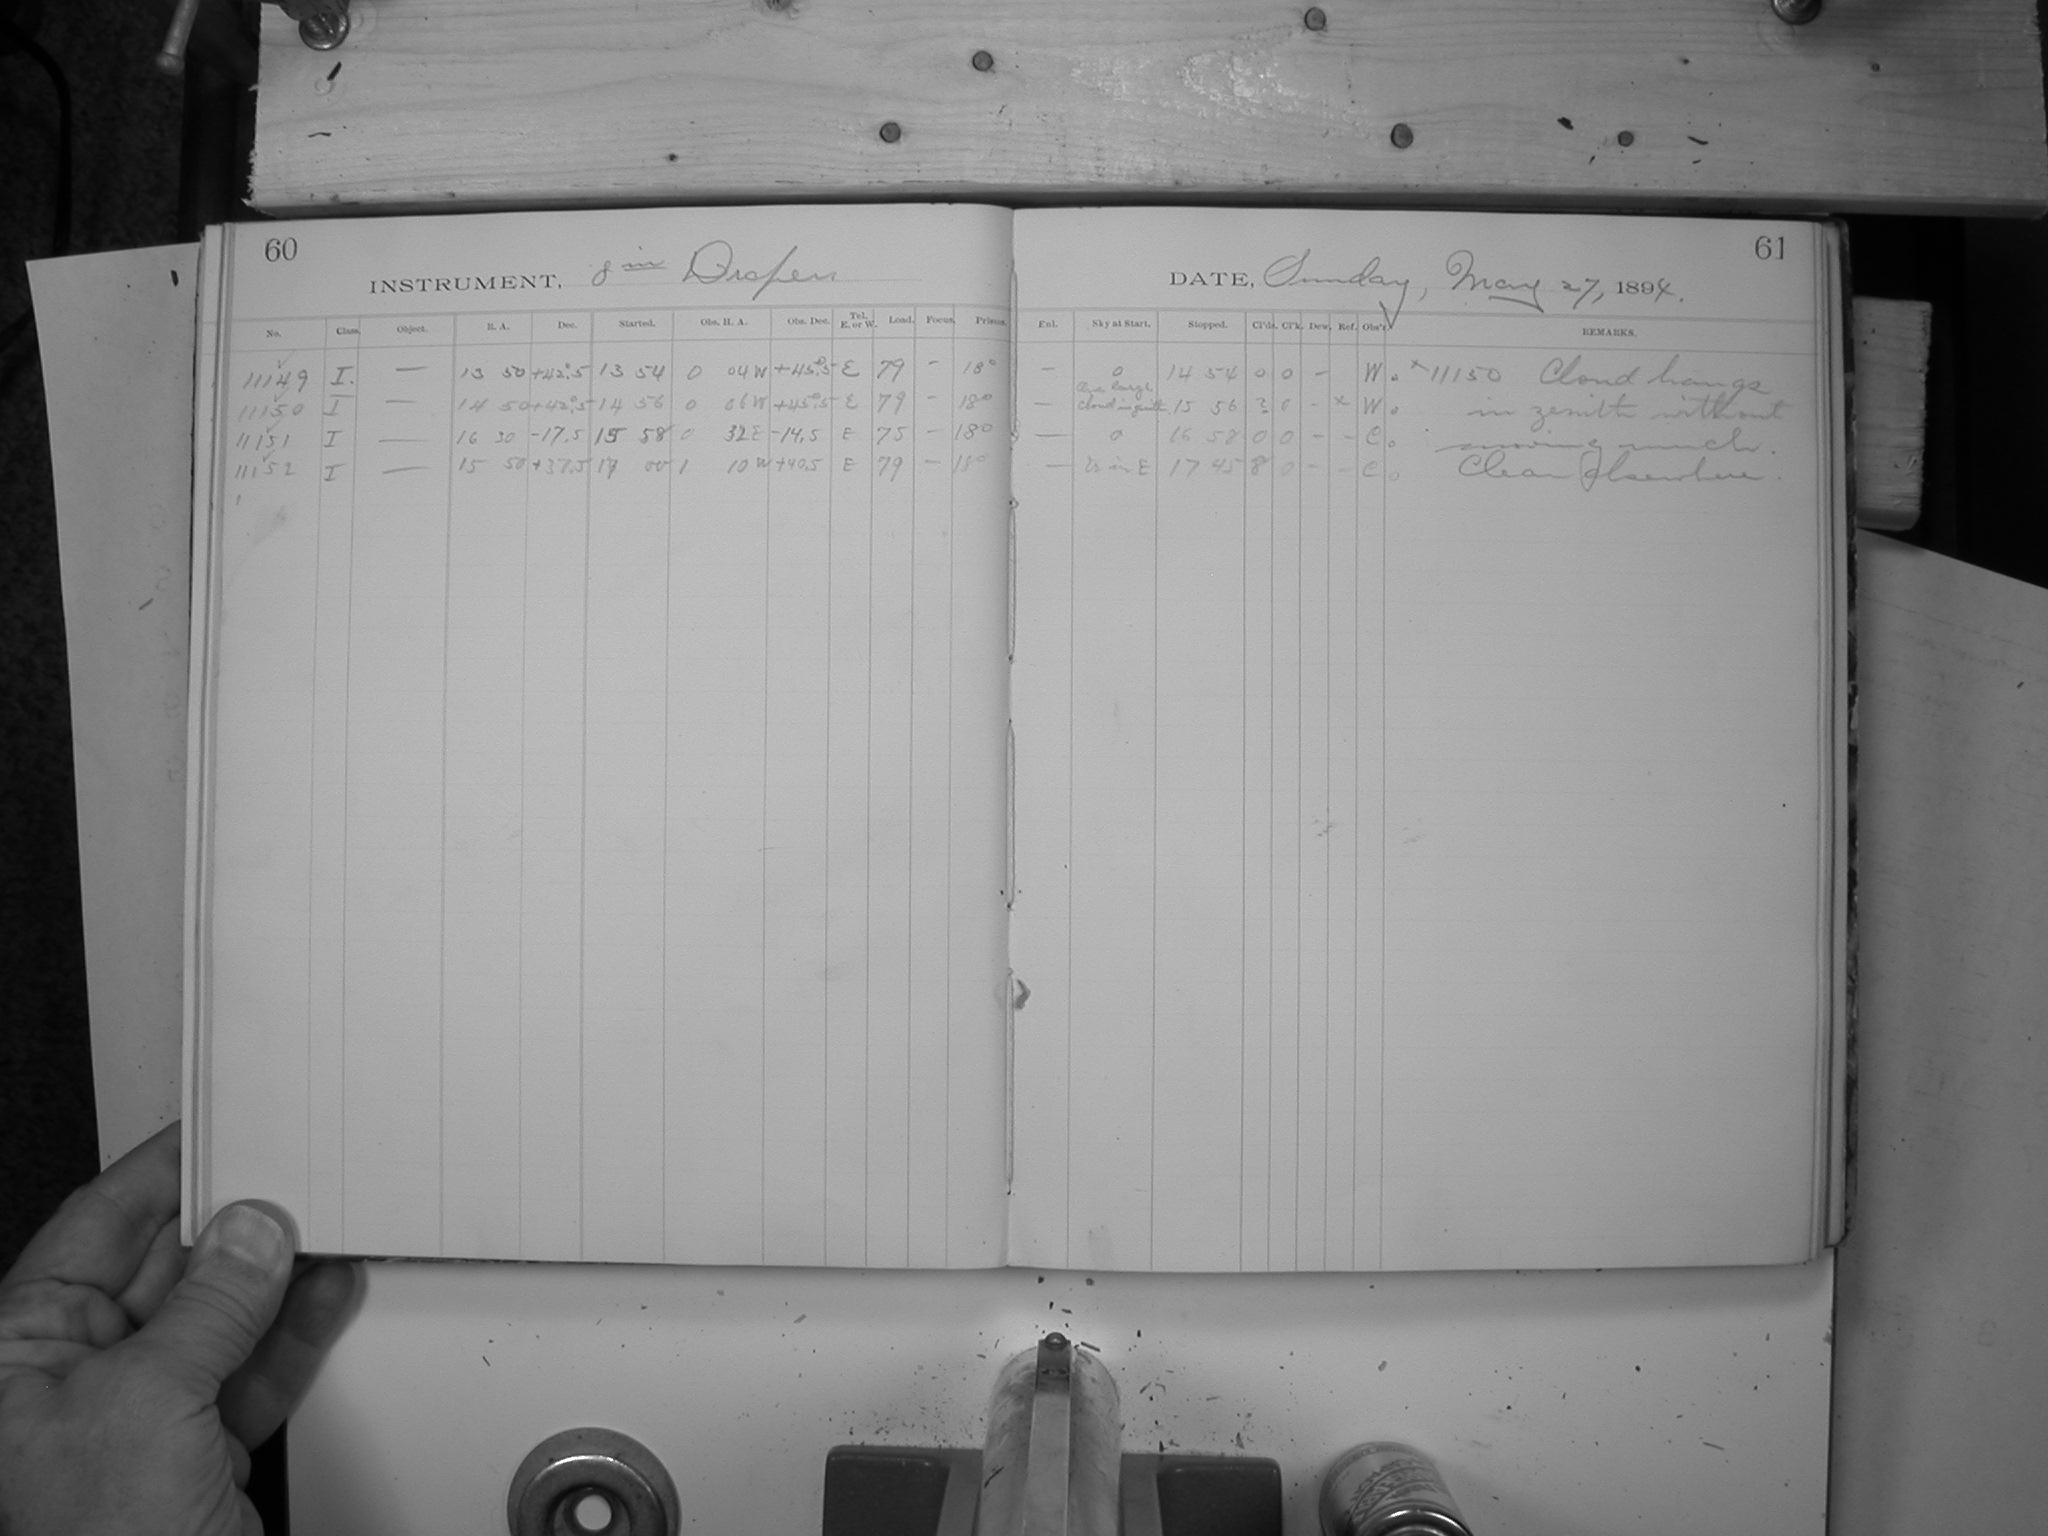 60
INSTRUMENT, 8 in Draper
No. Class. Object. R. A. Dec. Started. Obs. H. A. Obs. Dec. Tel. E. or W. Load. Focus. Prisms.
11149 I. — 13 50 +42°.5 13 54 0 04 W +45°.5 E 79 - 18°
11150 I — 14 50 +42°.5 14 56 0 06 W +45°.5 E 79 - 18°
11151 I — 16 30 -17.5 15 58 0 32 E -14.5 E 75 - 18°
11152 I — 15 50 +37.5 17 00 1 10 W +40.5 E 79 - 18°
61
DATE, Sunday, May 27, 1894.
Enl. Sky at Start. Stopped. Cl'ds. Cl'k. Dew. Ref. Obs'r. REMARKS.
— 0 14 54 0 0 - W. x 11150 Cloud hangs
— One large cloud in zenith 15 56 2 0 - x W. in zenith without
— 0 16 58 0 0 - - C. moving much.
— in E 17 45 8 0 - - C. Clear elsewhere.